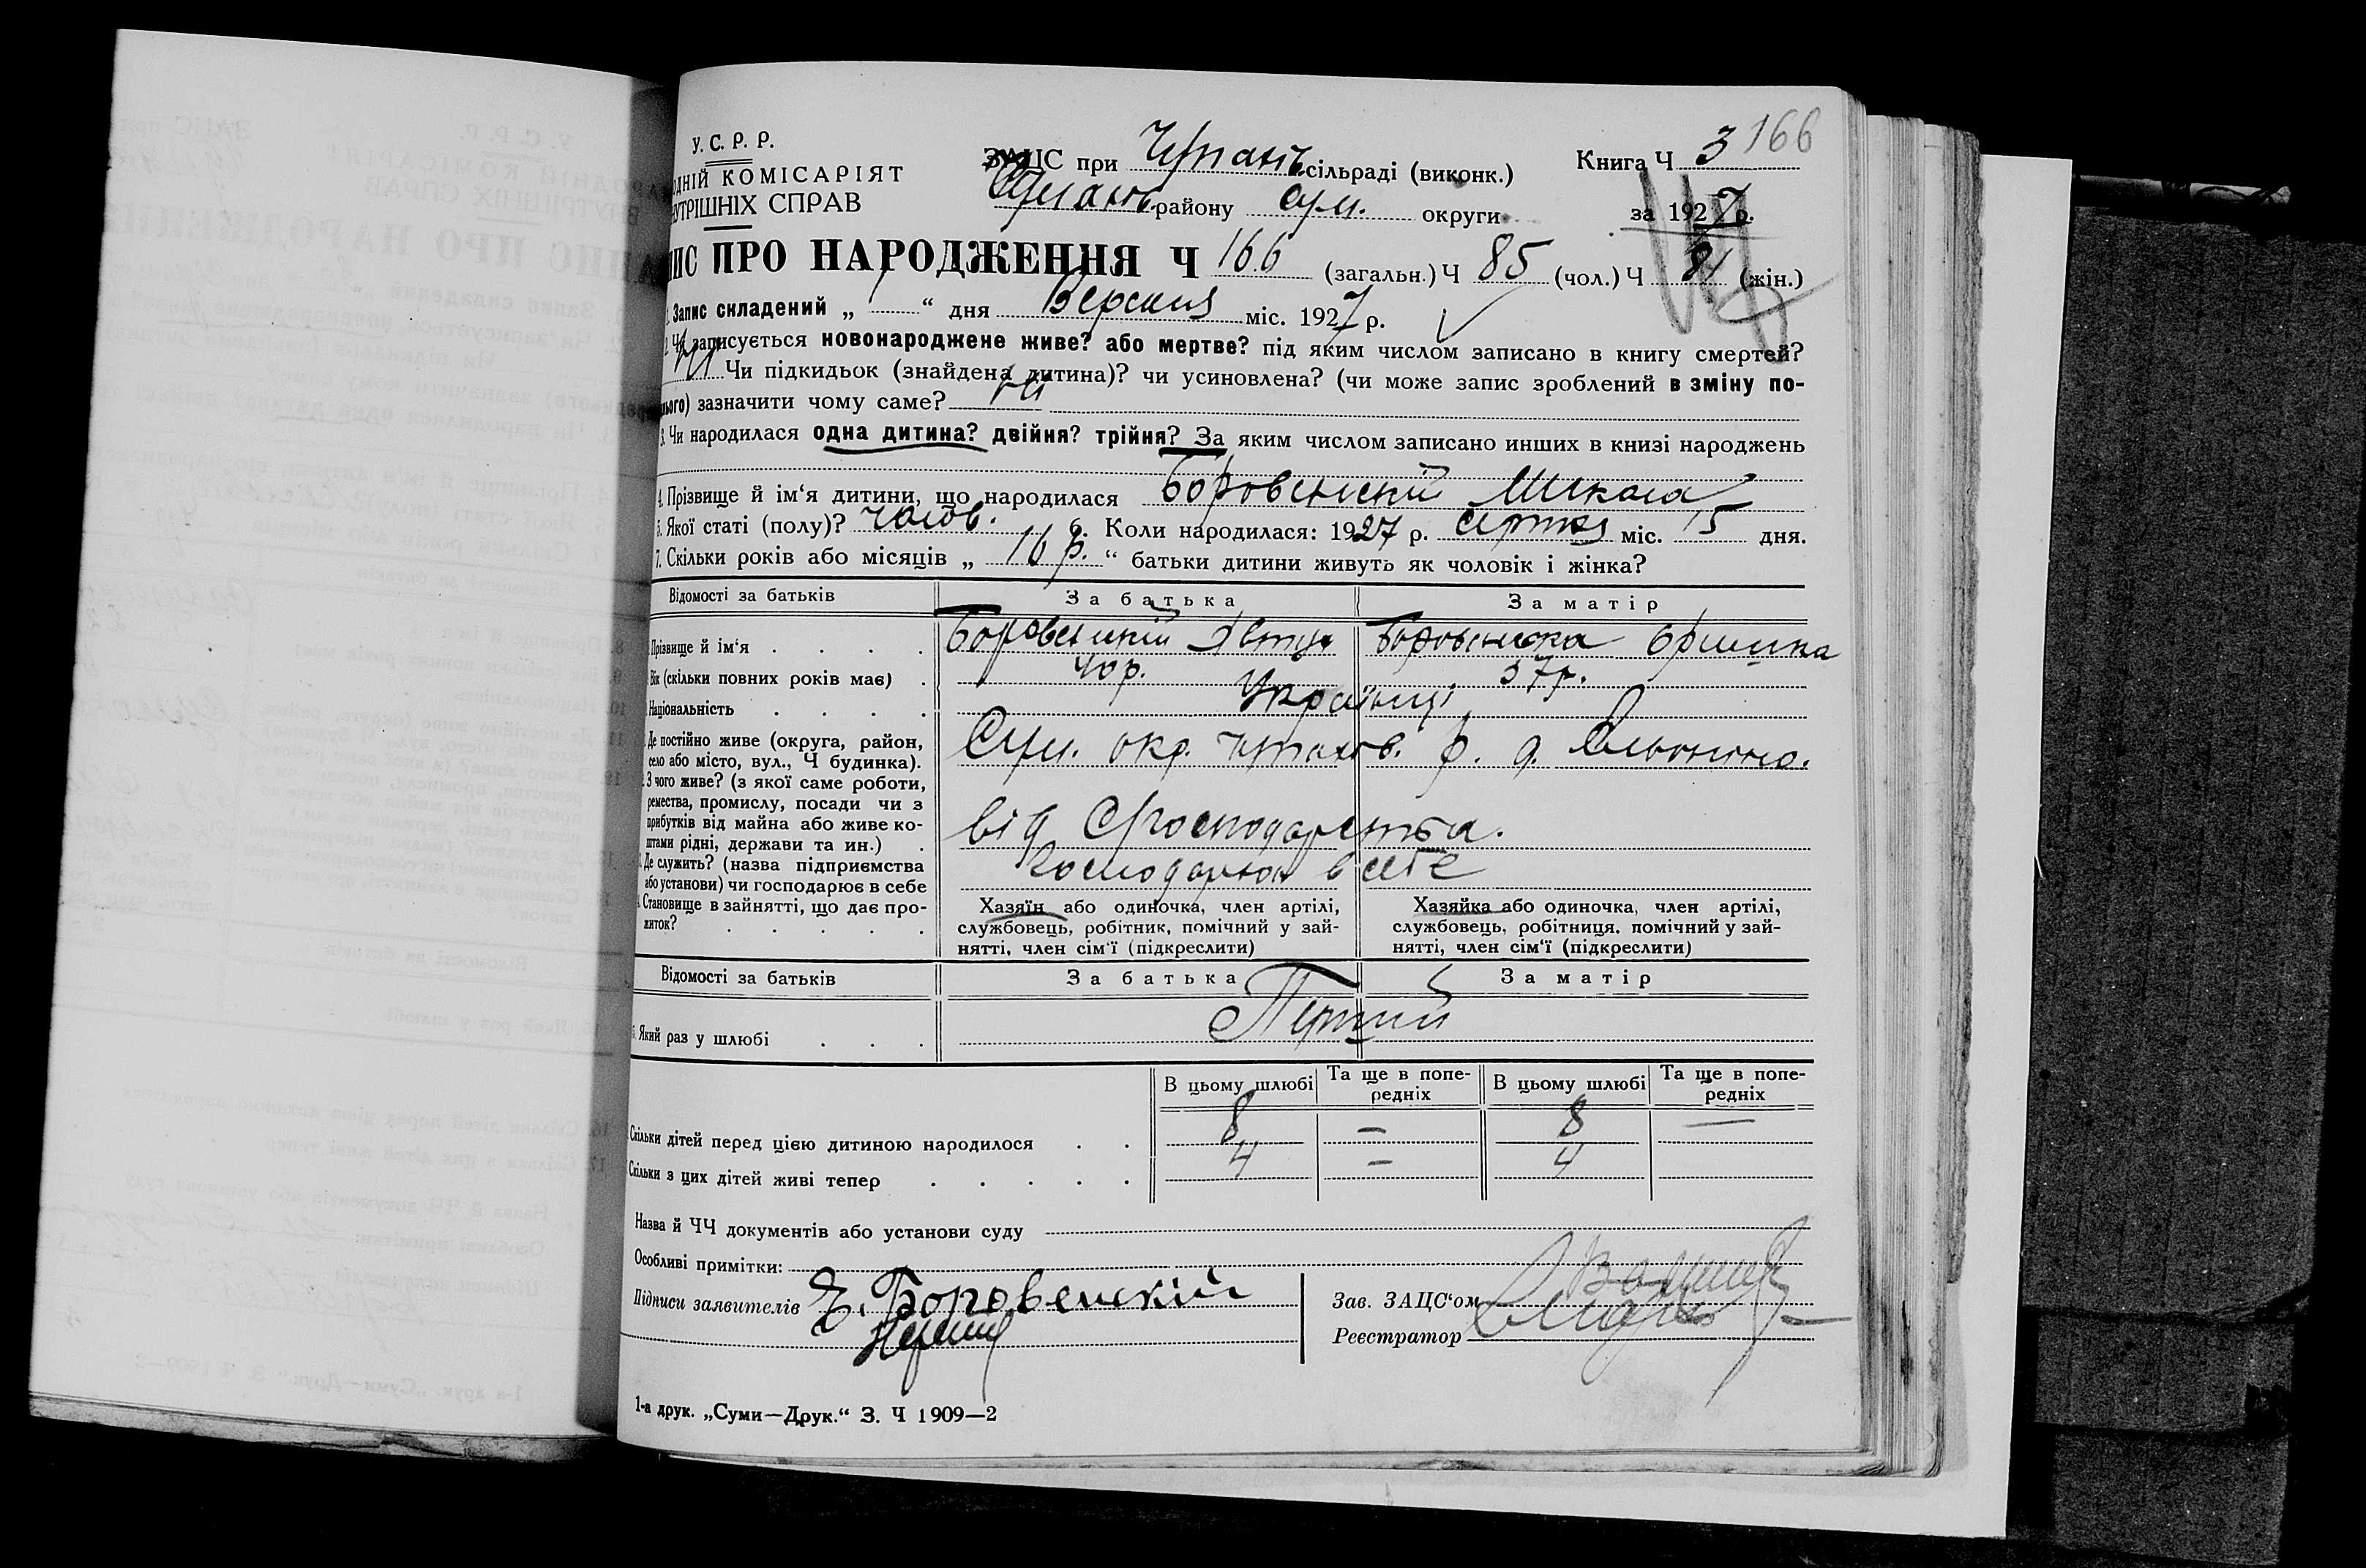 У. С. Р. Р.
ОДНІЙ КОМІСАРІЯТ
УТРІШНІХ СПРАВ
ЗАЦС при сільраді (виконк.)
району Сум. округи
Книга Ч 3 166
за 1927 р.
ПИС ПРО НАРОДЖЕННЯ Ч 166 (загальн.) Ч 85 (чол.) Ч 81 (жін.)
1. Запис складений „ 1 “ дня Вересня міс. 1927 р.
2. Чи записується новонароджене живе? або мертве? під яким числом записано в книгу смертей?
Ні Чи підкидьок (знайдена дитина)? чи усиновлена? (чи може запис зроблений в зміну по-
нього) зазначити чому саме? Ні
3. Чи народилася одна дитина? двійня? трійня? За яким числом записано инших в книзі народжень
4. Прізвище й ім‘я дитини, що народилася Боровенский Микола
5. Якої статі (полу)? чолов. 6. Коли народилася: 1927 р. серпня міс. 15 дня.
7. Скільки років або місяців „ 16 р. “ батьки дитини живуть як чоловік і жінка?
Відомості за батьків За батька За матір
Прізвище й ім‘я . . . . Боровенский Боровенска
Вік (скільки повних років має) . 40р. 37р.
Національність . . . . Українці
Де постійно живе (округа, район,
село або місто, вул., Ч будинка). Сум. окр. р.
З чого живе? (з якої саме роботи,
ремества, промислу, посади чи з
прибутків від майна або живе ко-
штами рідні, держави та ин.) . від Господарства.
Де служить? (назва підприємства
або установи) чи господарює в себе господарюють в себе
Становище в зайнятті, що дає про-
житок? . . . . .
Хазяїн або одиночка, член артілі,
службовець, робітник, помічний у зай-
нятті, член сім‘ї (підкреслити)
Хазяйка або одиночка, член артілі,
службовець, робітниця. помічний у зай-
нятті, член сім‘ї (підкреслити)
Відомості за батьків За батька За матір
Який раз у шлюбі . . . Перший
В цьому шлюбі Та ще в попе-
редніх В цьому шлюбі Та ще в попе-
редніх
Скільки дітей перед цією дитиною народилося . . 8 — 8 —
Скільки з цих дітей живі тепер . . . . . 4 — 4
Назва й ЧЧ документів або установи суду
Особливі примітки:
Підписи заявителів Боровенский
Зав. ЗАЦС‘ом
Реєстратор
1-а друк. „Суми—Друк.“ З. Ч 1909—2